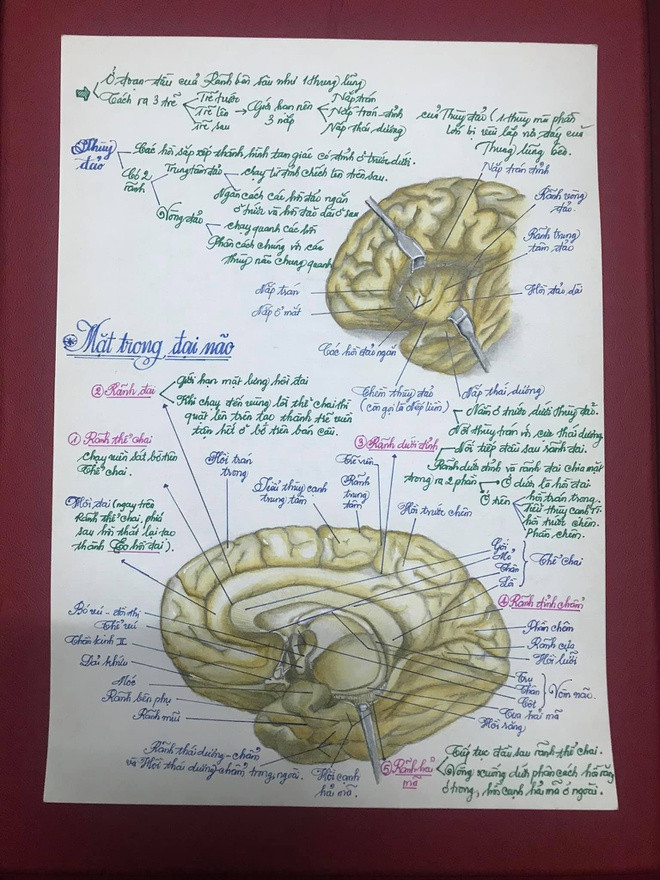 Ở đoạn đầu của Rãnh bên sâu như 1 thung lũng
Tách ra 3 trẽ
Trẽ trước
Trẽ lên
Trẽ sau
Giới hạn nên
3 nắp
Nắp trán
Nắp trán đỉnh
Nắp thái dương
của Thùy đảo (1 thùy mà phần
lớn bị vùi lấp ở đáy của
Thung lũng bên.
Thùy
đảo
Các hồi sắp xếp thành hình tam giác có đỉnh ở trước dưới.
Có 2
rãnh
Trung tâm đảo
chạy từ đỉnh chếch lên trên sau.
Ngăn cách các hồi đảo ngắn
ở trước và hồi đảo dài ở sau
Vòng đảo
chạy quanh các hồi
Phân cách chúng với các
thùy não chung quanh
Nắp trán đỉnh
Rãnh vòng
đảo.
Rãnh trung
tâm đảo
Hồi đảo dài
Nắp trán
Nắp ổ mắt
Các hồi đảo ngắn
Thềm thùy đảo
(còn gọi là nếp liềm)
Nắp thái dương
Mặt trong đại não
② Rãnh đai
Giới hạn mặt lưng hồi đai
Khi chạy đến vùng lồi thể chai thì
quặt lên trên tạo thành trẽ viền
tận hết ở bờ trên bán cầu.
① Rãnh thể chai
chạy viền sát bờ trên
Thể chai.
Hồi đai (ngay trên
Rãnh thể chai, phía
sau hồi thắt lại tạo
thành Eo hồi đai).
Nằm ở trước dưới thùy đảo.
Nối thùy trán với cực thái dương
③ Rãnh dưới đỉnh
Nối tiếp đầu sau rãnh đai.
Rãnh dưới đỉnh và rãnh đai chia mặt
trong ra 2 phần
Ở dưới là hồi đai
Ở trên
hồi trán trong.
Tiểu thùy cạnh TT
hồi trước chêm.
Phần chêm.
Hồi trán
trong
Tiểu thùy cạnh
trung tâm
Trẽ viền
Rãnh
trung
tâm
Hồi trước chêm
Gối
Mỏ
Thân
Lồi
Thể chai
④ Rãnh đỉnh chẩm
Phần chêm
Rãnh cựa
Hồi lưỡi
Trụ
Thân
Cột
Vòm não.
Tua hải mã
Hồi răng
Bó vú - đồi thị
Thể vú
Thần kinh II
Dải khứu
Móc
Rãnh bên phụ
Rãnh mũi
Rãnh thái dương - chẩm
và Hồi thái dương - chẩm trong, ngoài.
Hồi cạnh
hải mã.
⑤ Rãnh hải
mã
Tiếp tục đầu sau rãnh thể chai.
Vòng xuống dưới phân cách hồi răng
ở trong, hồi cạnh hải mã ở ngoài.